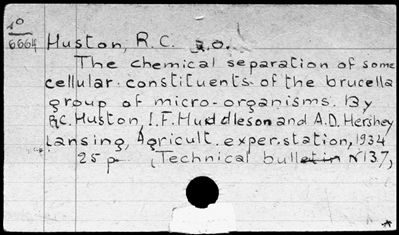 10
6664
Huston, R.C. a.o.
The chemical separation of some
cellular constituents of the brucella
group of micro-organisms. By
R.C. Huston, I.F. Huddleson and A.D. Hershey
Lansing, Agricult. exper. station, 1934
25 p (Technical bulletin No 137,